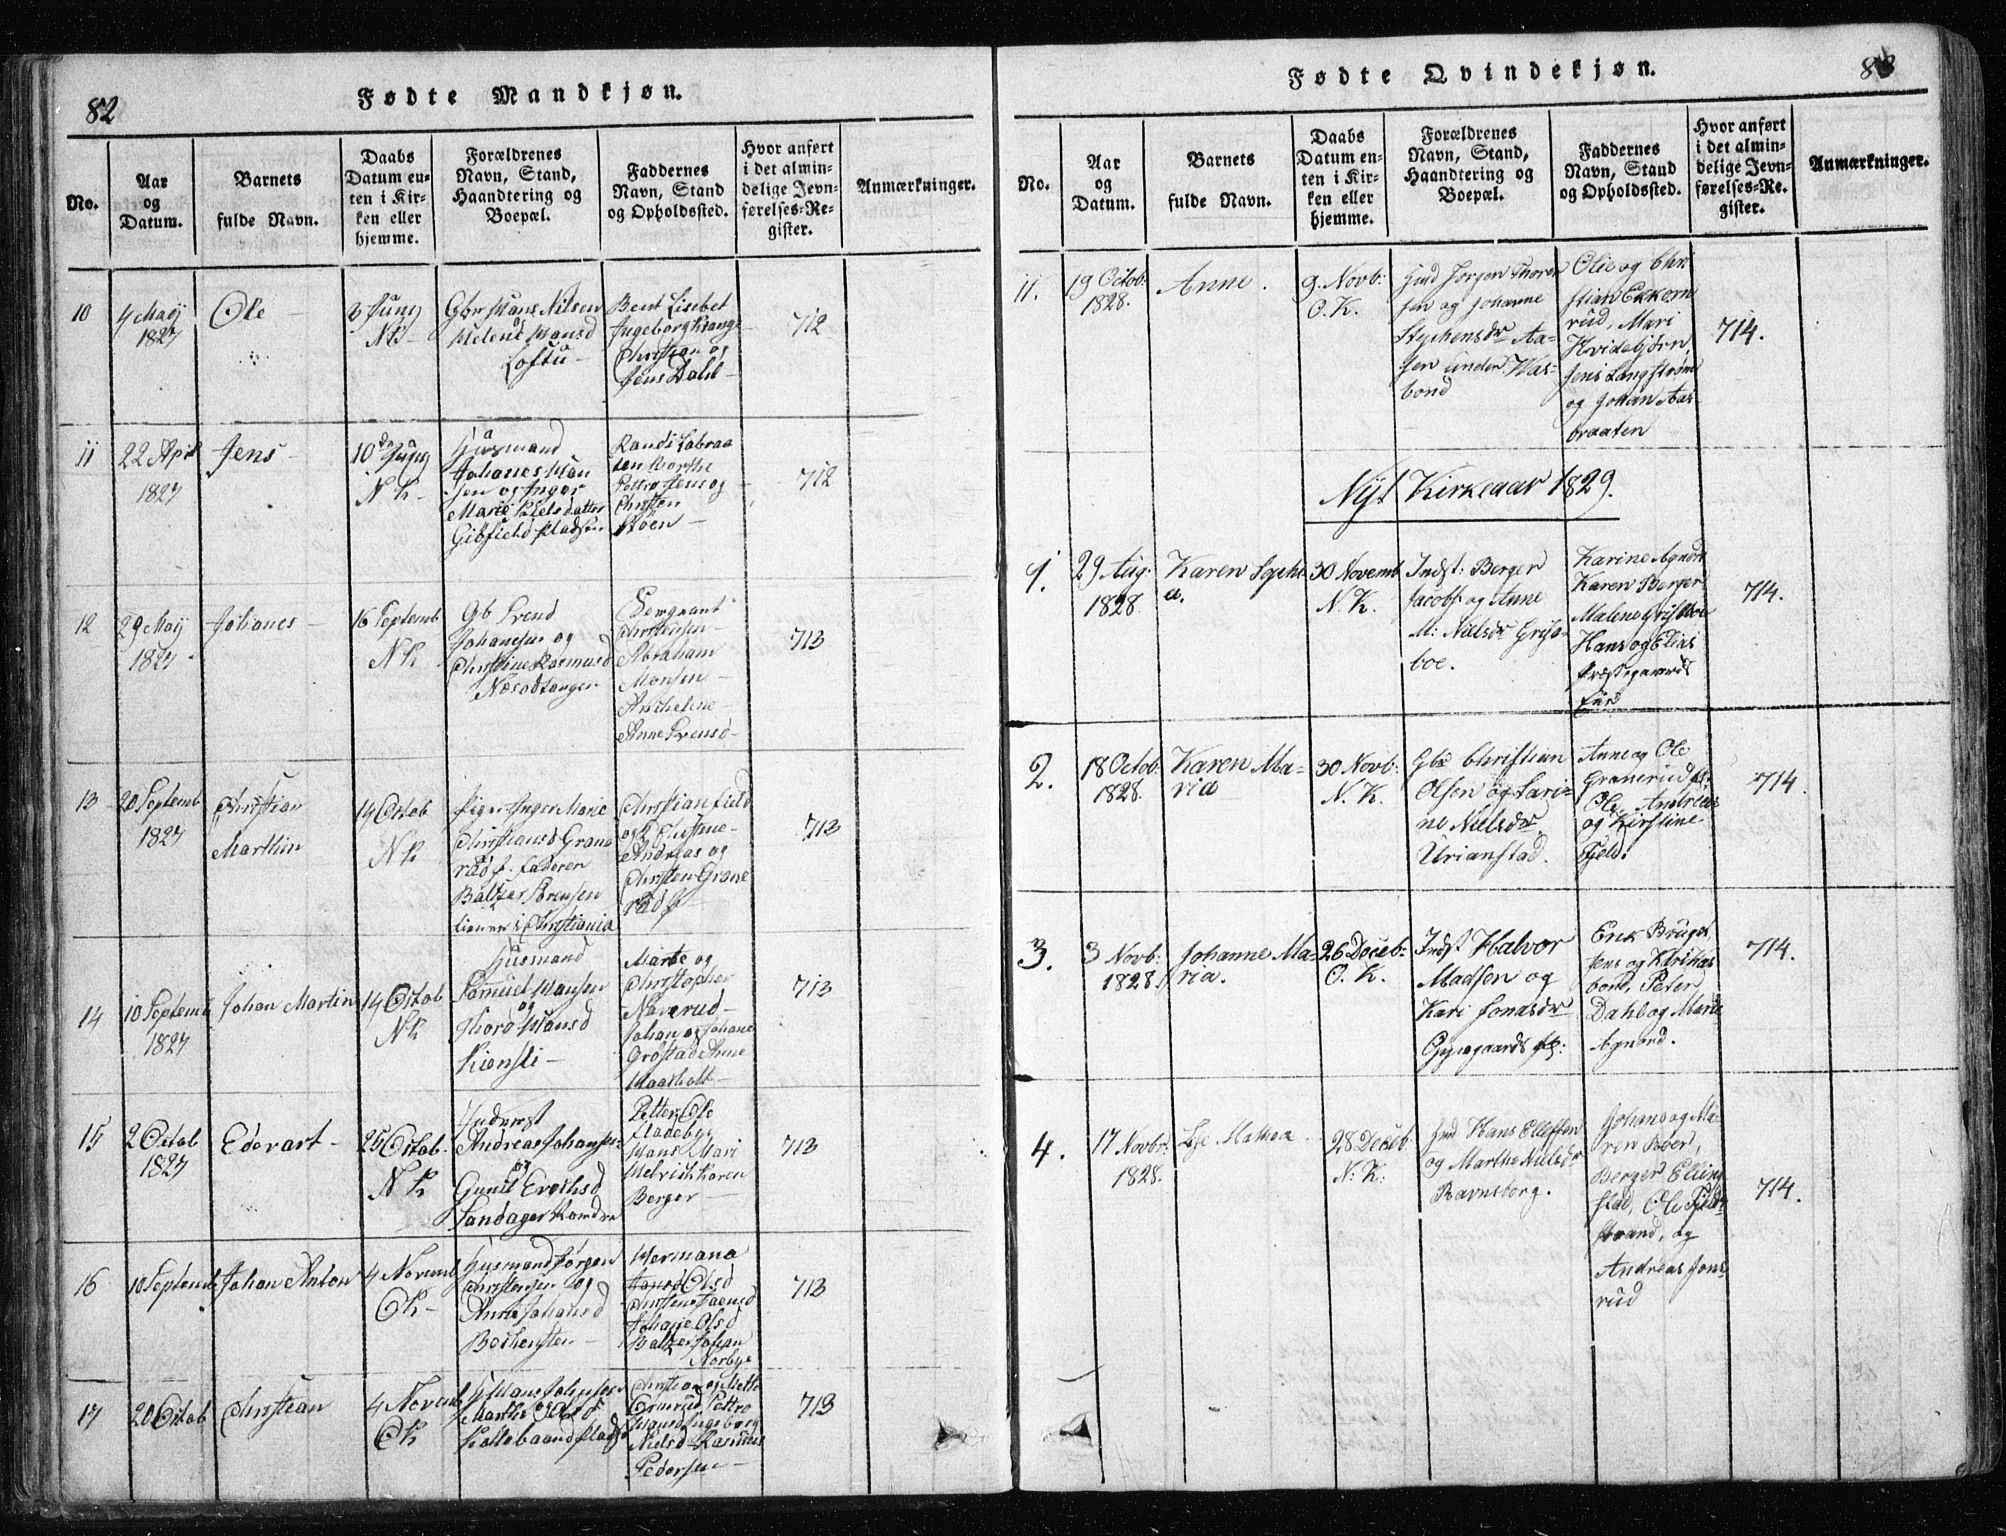 82
Fødte Mandkjøn.
No.
Aar
og
Datum.
Barnets
fulde Navn.
Daabs
Datum en-
ten i Kir-
ken eller
hjemme.
Forældrenes
Navn, Stand,
Haandtering og
Boepæl.
Faddernes
Navn, Stand
og Opholdssted.
Hvor anført
i det almin-
delige Jevn-
førelses-Re-
gister.
Anmærkninger.
10
4 Maij
1827
Ole
3 Juny
NK
Gbr Hans Nilsen
Helene Hansd
Loftu
Bent Lisebet
Ingeborg Krange
Christian og
Jens Dahl
712
11
22 April
1827
Jens
10 Juny
NK
Husmand
Johanes Han
sen og Inger
Marie Nielsdatter
Gibfield Pladsen
Randi Labraa
ten Marthe
Pettro Jens og
Christen
Støen
712
12
29 Maij
1827
Johanes
16 Septemb
NK
Gb Svend
Johanesen og
Christine Rasmusd
Næsodtangen
Sergeant
Christensen
Abraham
Monsen
Anne Svensd
713
13
20 Septemb
1827
Christian
Marthin
14 Octob
NK
Pige Inger Marie
Christiansd Grane
rud f. Faderen
Baltzer Sørensen
tiener i Christiania
Christian Field
og Christine
Andreas og
Christen Grane
rud
713
14
10 Septemb
1827
Johan Martin
14 Octob
NK
Husmand
Samuel Hansen
og
Thora Hansd
Kiensli
Marte og
Christopher
Naverud
Johan og Johane
Grøstad Anne
Haasholt
713
15
2 Octob
1827
Edevart
25 Octob
NK
Inderst
Andreas Johansen
og
Gunil Erichsd
Sandager Komdre
Petter Ole
Fladebye
Hans Mari
Helvich Karen
Berger
713
16
10 Septemb
Johan Anton
4 Novemb
OK
Husmand Jørgen
Christensen og
Anne Johansd
Bechensten
Hermana
Olsd
Johane Olsd
Baltzer Johan
Norbye
713
17
20 Octob
Christian
4 Novemb
OK
H Hans Johnsen
Marthe Olsd
Kallebaand Pladsd
Christian og Mette
Grinrud Pettro
Hansd Ingeborg
Nielsd Rasmus
Pedersen
713
83
Fødte Qvindekjøn.
No.
Aar
og
Datum.
Barnets
fulde Navn.
Daabs
Datum en-
ten i Kir-
ken eller
hjemme.
Forældrenes
Navn, Stand,
Haandtering og
Boepæl.
Faddernes
Navn, Stand
og Opholdssted.
Hvor anført
i det almin-
delige Jevn-
førelses-Re-
gister.
Anmærkninger.
11.
19 Octob:
1828.
Anne.
9. Novb:
O. K.
Ind Jørgen Thoren
sen og Johanne
Stephensdr Aa-
sen under Was-
bond
Ole og Chri
stian Ekkorn
rud, Mari
Kvidebjørn,
Jens Langstrøm
og Johan Aas
braaten
714.
Nyt Kirkeaar 1829.
1.
29 Aug:
1828.
Karen Sophi
a.
30 Novemb
N. K.
Indst: Berger
Jacobs: og Anne
M: Nielsdr Griis-
boe.
Karine Agnord
Karen Berger
Malene Griisboe
Hans og Elias
Præstegaards
Eier
714.
2.
18 Octob:
1828.
Karen Ma-
ria
30 Novb:
N. K.
Gbr Christian
Olsen og Lari-
ne Nielsdr
Urianstad.
Anne og Ole
Granerud,
Ole, Andreas
og Kirstine
Fjeld.
714.
3.
3 Novb:
1828.
Johanne Ma-
ria.
26 Deceb:
O. K.
Indst Halvor
Madsen og
Kari Jonasdr
Gysegaards pl:
Erik Bruget,
Jens og Kirikas
bond, Peter
Dahl og Marie
Agnord.
714.
4.
17 Novbr:
1828.
Lise Mathea.
28 Deceb
N. K:
Ind Hans Ellefsen
og Marthe Nielsdr
Ravnsborg.
Johan og Ma-
ren Boer,
Berger Elling
stad, Ole Fjeld
strand, og
Andreas Jons
rud
714.